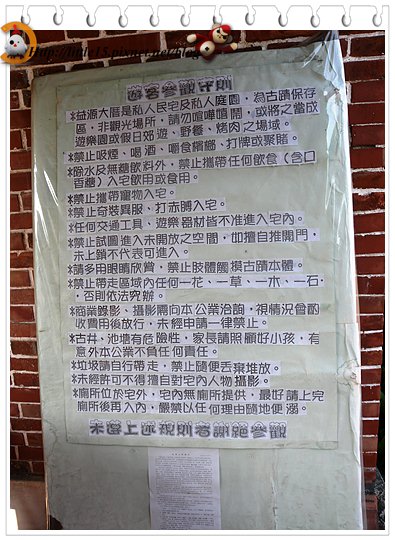 Http://little15.pixnet.net/blog
遊客參觀守則
*益源大厝是私人民宅及私人庭園，為古蹟保存
區，非觀光場所，請勿喧嘩嬉鬧，或將之當成
遊樂園或假日郊遊、野餐、烤肉之場域。
*禁止吸煙、喝酒、嚼食檳榔、打牌或聚賭。
*除水及無糖飲料外，禁止攜帶任何飲食（含口
香糖）入宅飲用或食用。
*禁止攜帶寵物入宅。
*禁止奇裝異服、打赤膊入宅。
*任何交通工具、遊樂器材皆不准進入宅內。
*禁止試圖進入未開放之空間，如擅自推開門，
未上鎖不代表可進入。
*請多用眼睛欣賞，禁止肢體觸摸古蹟本體。
*禁止帶走區域內任何一花、一草、一木、一石，
，否則依法究辦。
*商業錄影、攝影需向本公業洽詢，視情況會酌
收費用後放行，未經申請一律禁止。
*古井、池塘有危險性，家長請照顧好小孩，有
意外本公業不負任何責任。
*垃圾請自行帶走，禁止隨便丟棄堆放。
*未經許可不得擅自對宅內人物攝影。
*廁所位於宅外，宅內無廁所提供，最好請上完
廁所後再入內，嚴禁以任何理由隨地便溺。
未遵上述規則者謝絕參觀